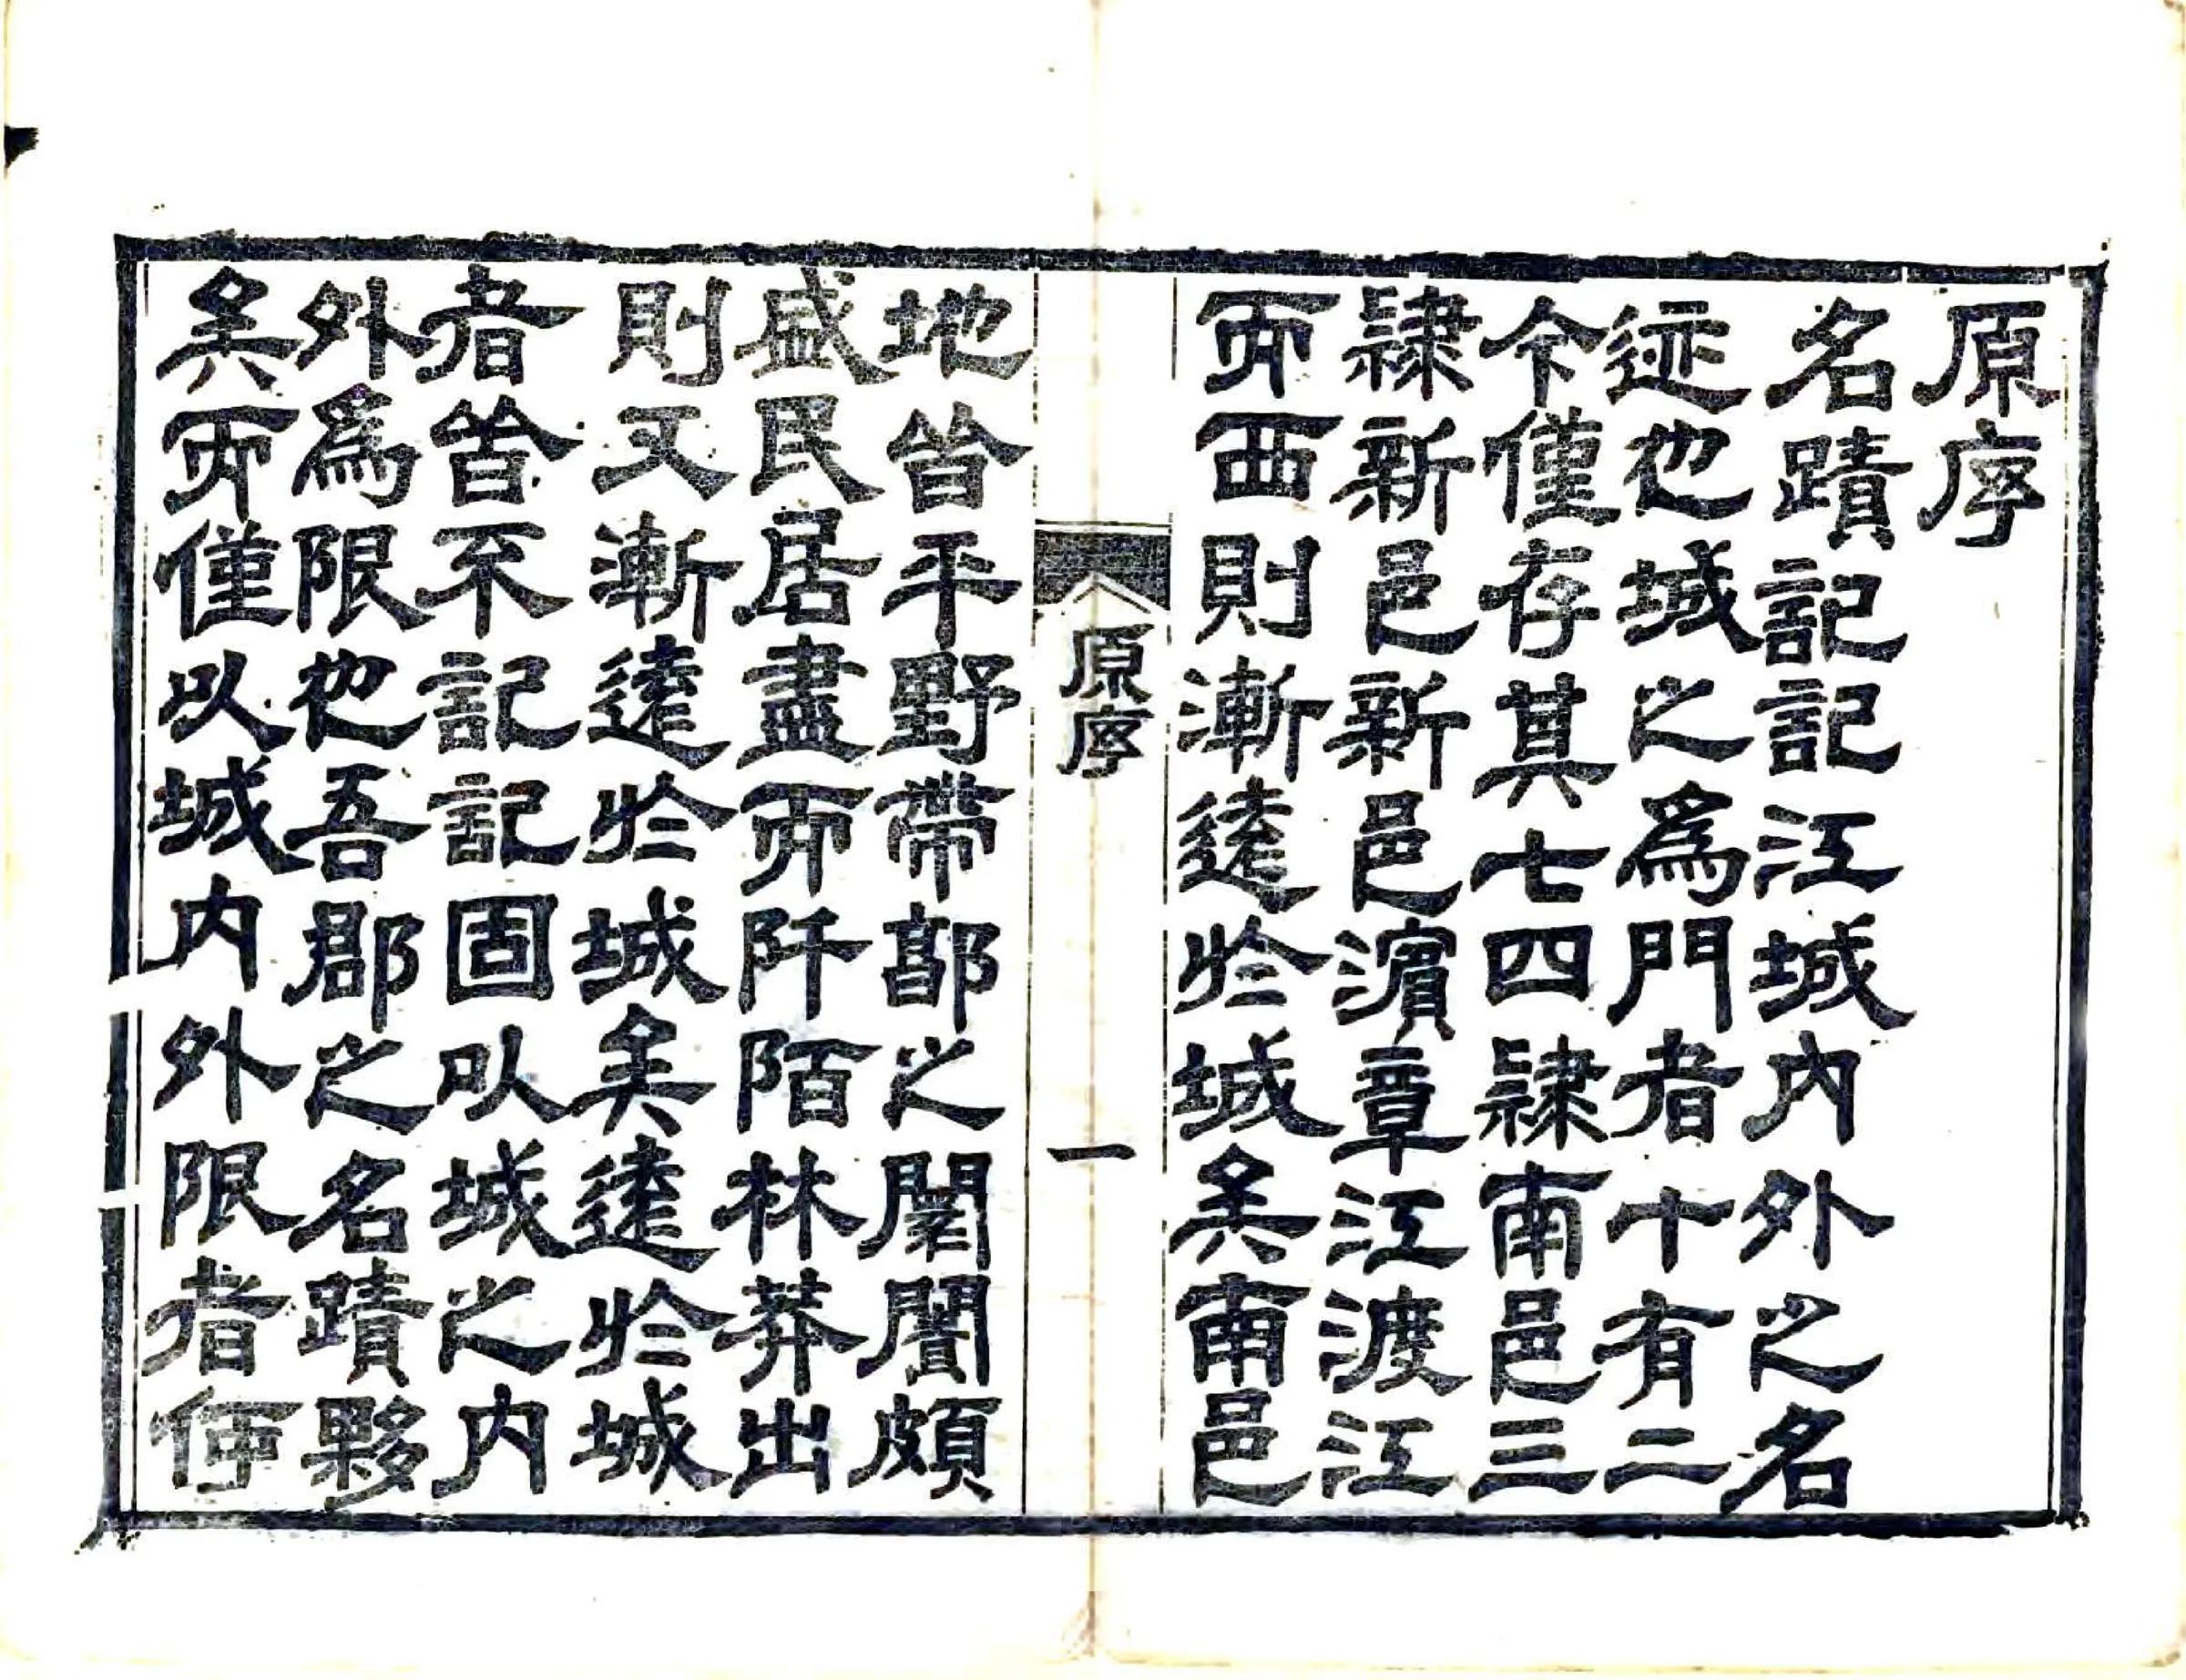 原序
名蹟記記江城內外之名
迹也城之爲門者十有二
今僅存其七四隸南邑三
隸新邑新邑濵章江渡江
而西則漸遠於城矣南邑
原序
一
地皆平野帶郭之闤闠頗
盛民居盡而阡陌林莽出
則又漸遠於城矣遠於城
者皆不記記固以城之内
外爲限也吾郡之名蹟夥
矣而僅以城内外限者何